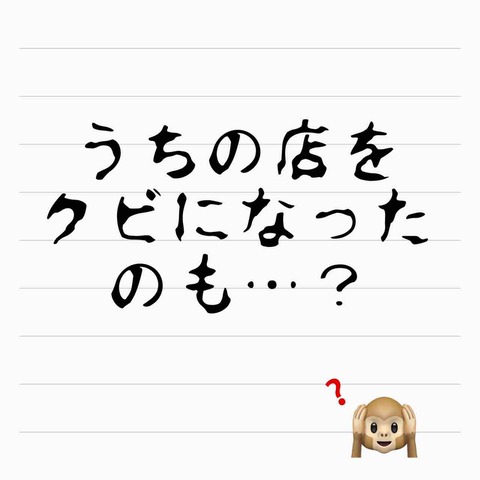 うちの店を
クビになった
のも…？
?